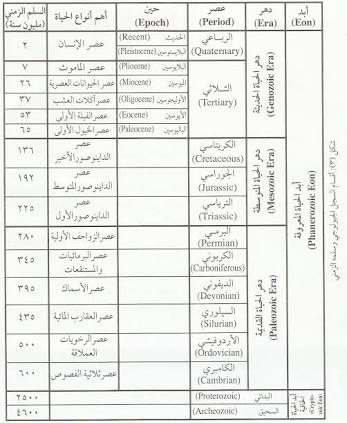 أبد
(Eon)
دهر
(Era)
عصر
(Period)
حين
(Epoch)
أهم أنواع الحياة
السلم الزمني
(مليون سنة)
أبد الحياة المعروفة
(Phanerozoic Eon)
دهر الحياة الحديثة
(Genozoic Era)
الرباعي
(Quaternary)
الحديث (Recent)
البلايستوسين (Pleistocene)
عصر الإنسان
٢
الثلاثي
(Tertiary)
البلايوسين (Pliocene)
عصر الماموث
٧
الميوسين (Miocene)
عصر الحيوانات العصرية
٢٦
الأوليجوسين (Oligocene)
عصر آكلات العشب
٣٧
الأيوسين (Eocene)
عصر الفيلة الأولى
٥٣
الباليوسين (Paleocene)
عصر الخيول الأولى
٦٥
دهر الحياة المتوسطة
(Mesozoic Era)
الكريتاسي
(Cretaceous)
عصر
الداينوصور الأخير
١٣٦
الجوراسي
(Jurassic)
عصر
الداينوصور المتوسط
١٩٢
الترياسي
(Triassic)
عصر
الداينوصور الأول
٢٢٥
دهر الحياة القديمة
(Paleozoic Era)
البرمي
(Permian)
عصر الزواحف الأولية
٢٨٠
الكربوني
(Carboniferous)
عصر البرمائيات
والمستنقعات
٣٤٥
الديفوني
(Devonian)
عصر الأسماك
٣٩٥
السيلوري
(Silurian)
عصر العقارب المائية
٤٣٥
الأردوفيشي
(Ordovician)
عصر الرخويات
العملاقة
٥٠٠
الكامبري
(Cambrian)
عصر ثلاثية الفصوص
٦٠٠
أبد الحياة
الخافية
(Crypto
zoic Eon)
البدائي
(Proterozoic)
٢٥٠٠
السحيق
(Archeozoic)
٤٦٠٠
شكل (٣): أقسام السجل الجيولوجي وسلمه الزمني